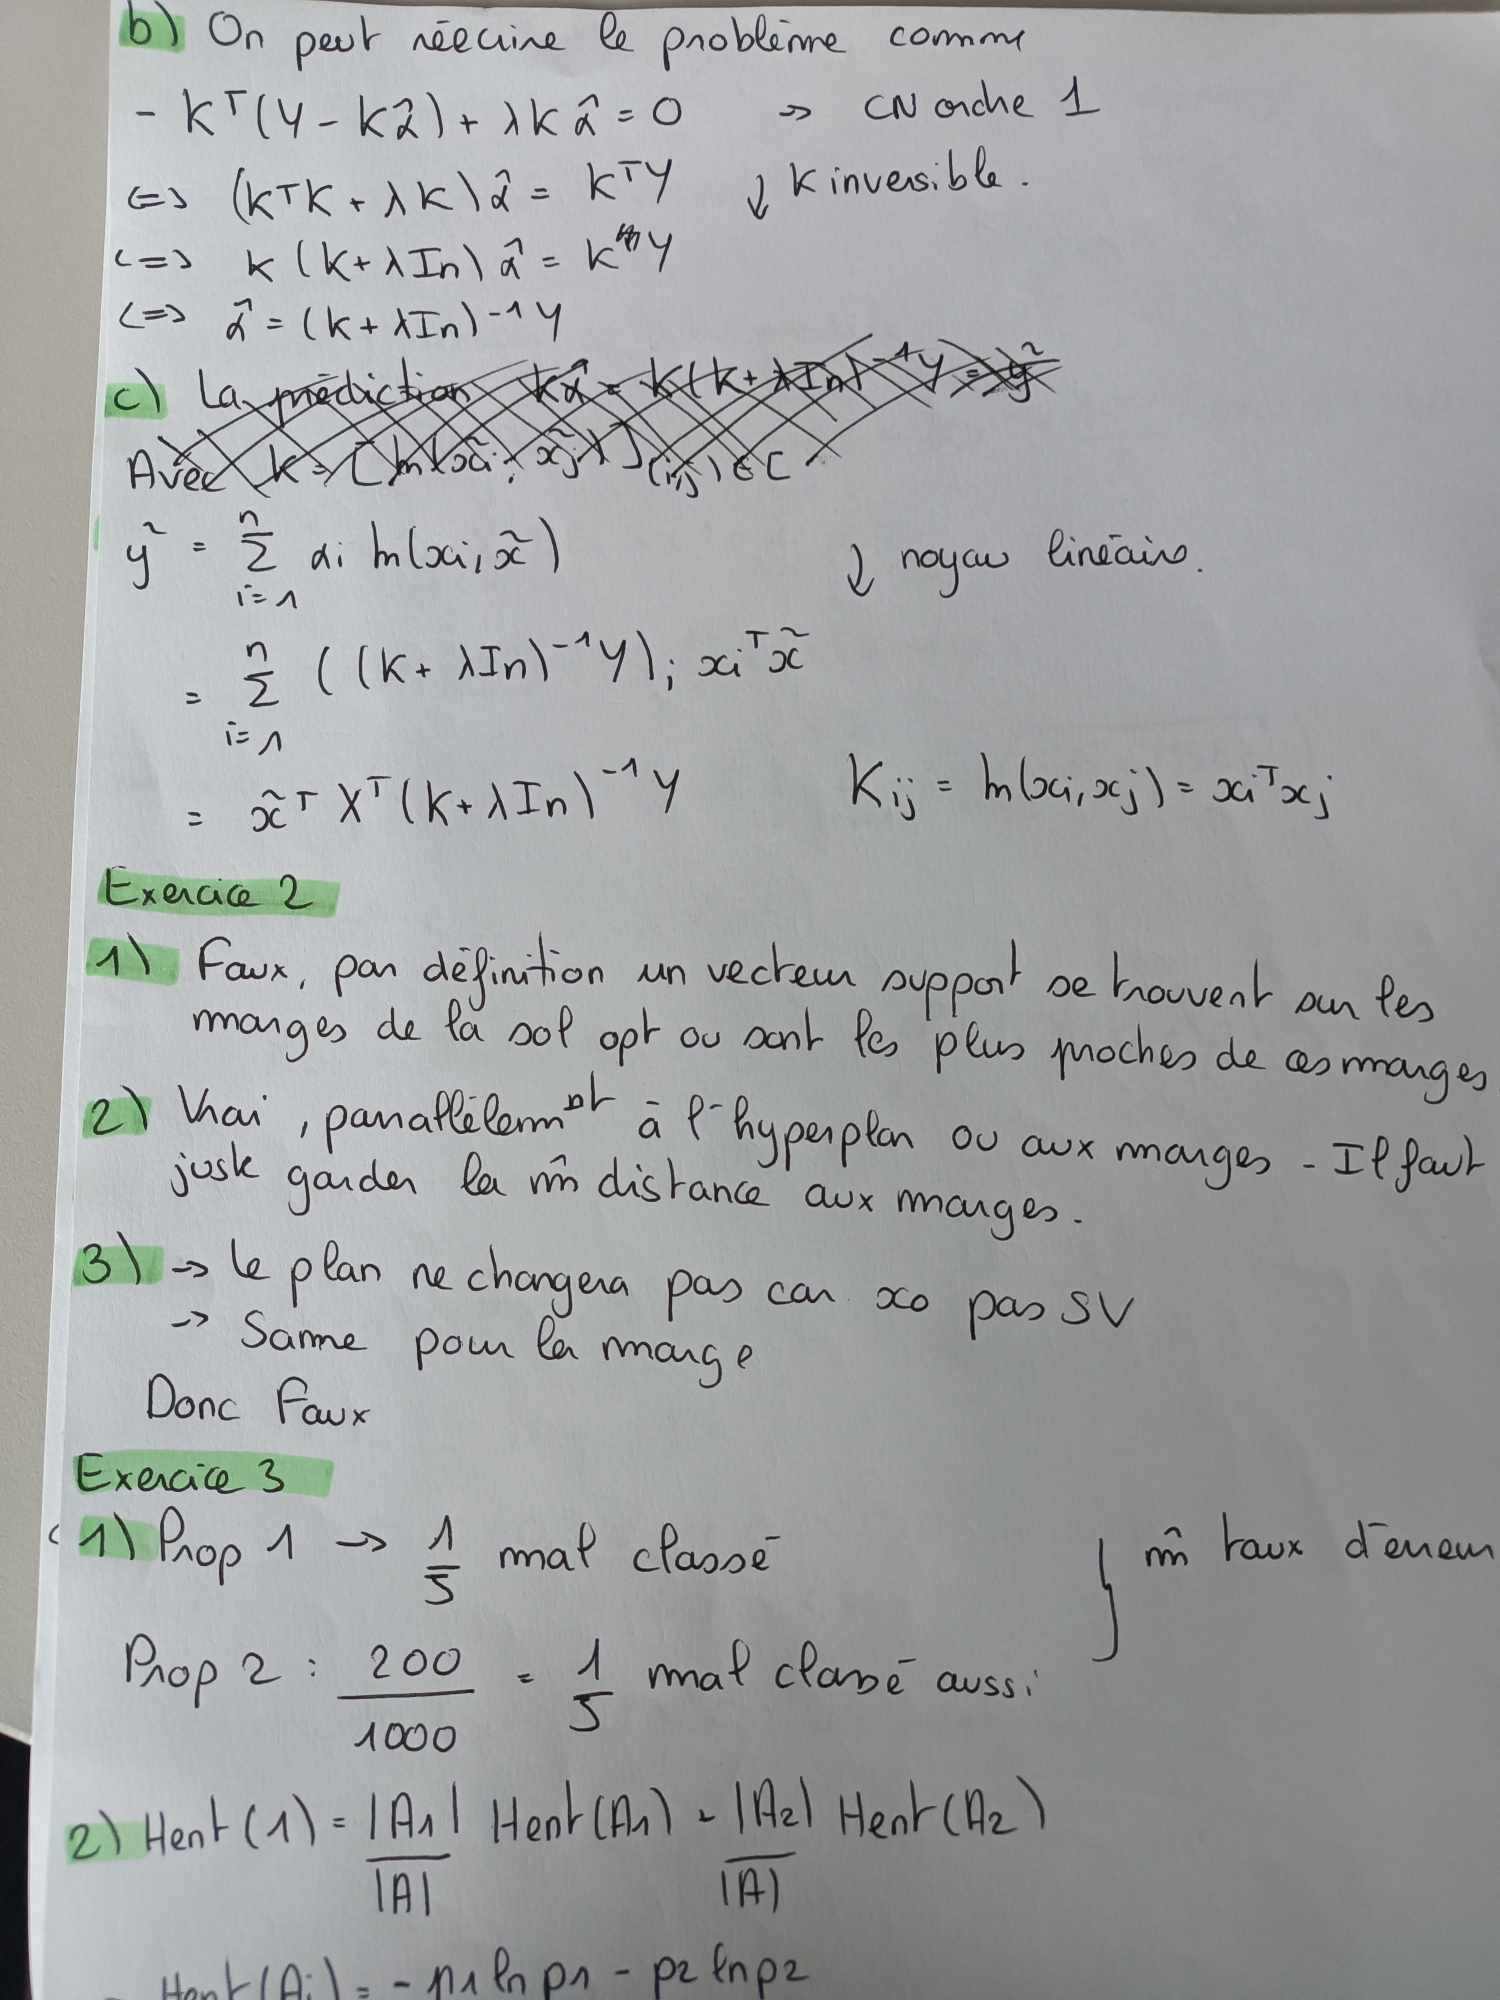 b) On peut réécrire le problème comme
- K^T(Y - Kα̂) + λKα̂ = 0 → CN ordre 1
<=> (K^TK + λK)α̂ = K^TY ↓ K inversible.
<=> K(K+λIn)α̂ = KY
<=> α̂ = (K+λIn)^-1 Y
c) La prédiction Kα̂ = K(K+λIn)^-1 Y = ỹ
Avec K = [k(x̃i, x̃j)](i,j)∈
ỹ = Σ_{i=1}^{n} αi k(xi, x̃) ↓ noyau linéaire.
= Σ_{i=1}^{n} ((K+λIn)^-1 Y)i xi^T x̃
= x̃^T X^T (K+λIn)^-1 Y Kij = k(xi, xj) = xi^T xj
Exercice 2
1) Faux, par définition un vecteur support se trouvent sur les
marges de la sol opt ou sont les plus proches de ces marges
2) Vrai, parallèlemnt à l'hyperplan ou aux marges - Il faut
juste garder la m̂ distance aux marges.
3) → le plan ne changera pas car x0 pas SV
→ Same pour la marge
Donc Faux
Exercice 3
1) Prop 1 → 1/5 mal classé } m̂ taux d'erreur
Prop 2 : 200/1000 = 1/5 mal classé aussi
2) Hent(1) = |A1|/|A| Hent(A1) - |A2|/|A| Hent(A2)
Hent(Ai) = - p1 ln p1 - p2 ln p2